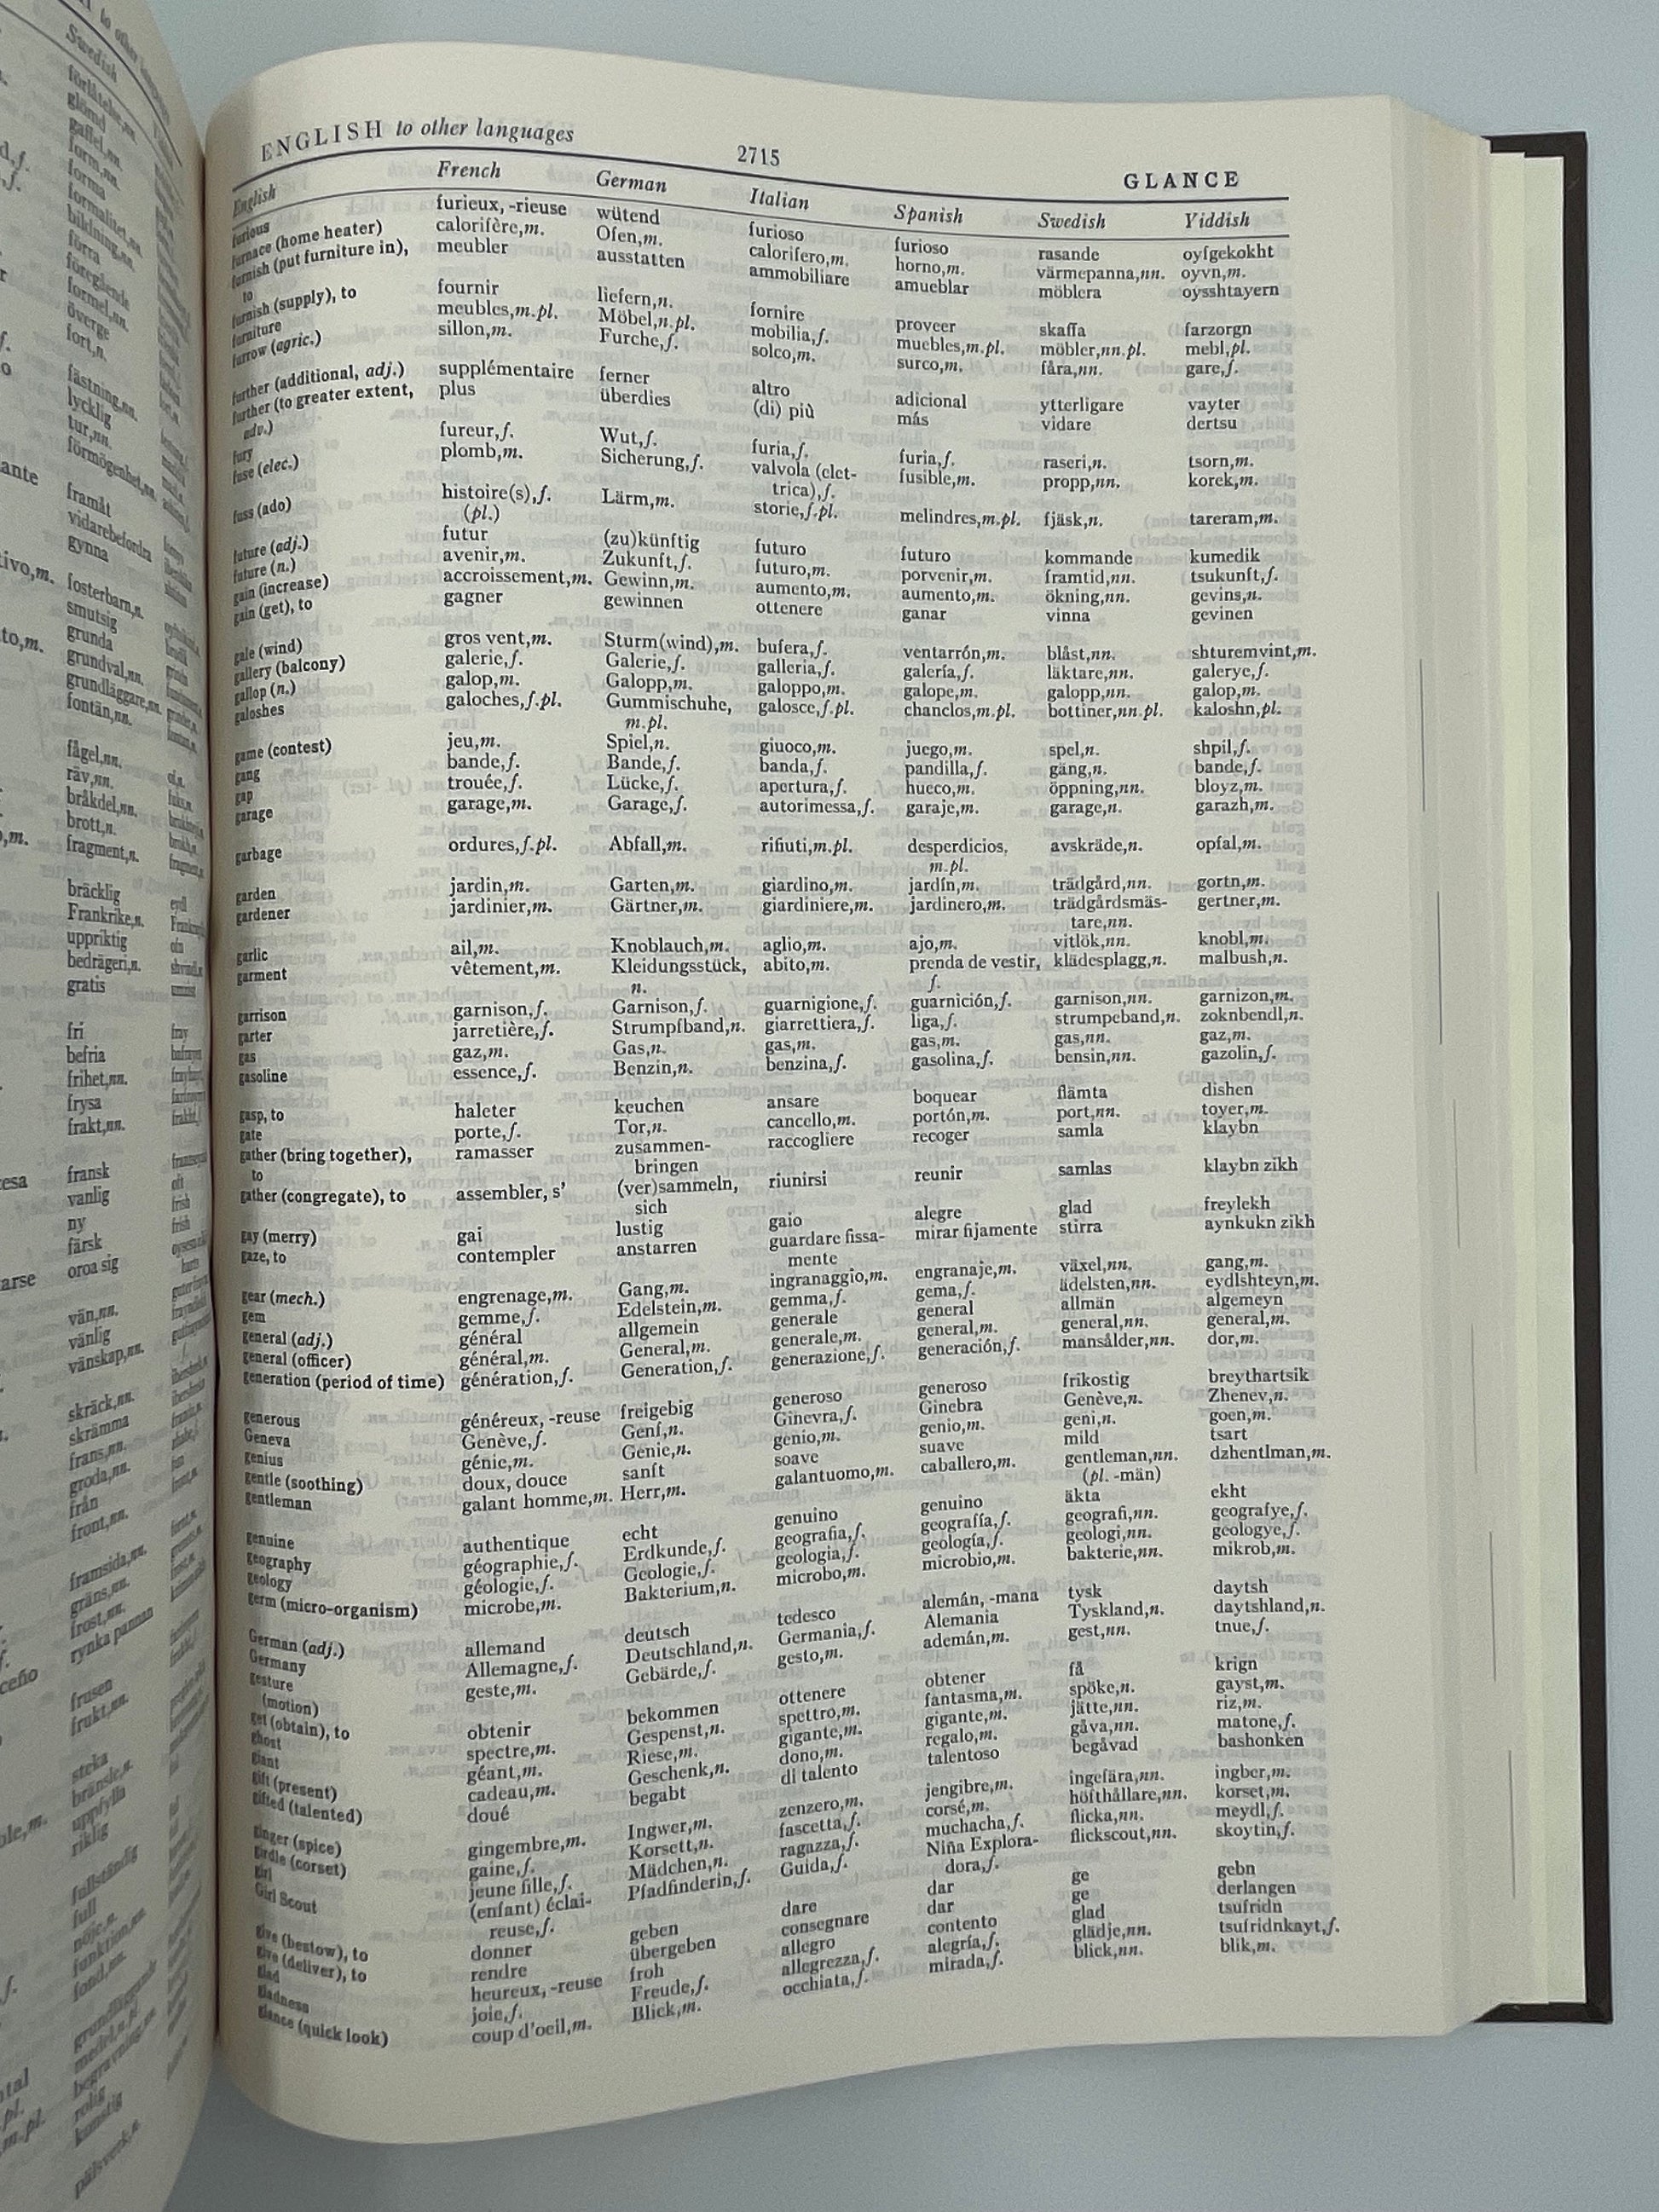 to other languages
Swedish
förlåtelse,nn.
glömd
gaffel,nn.
form,nn.
forma
formalitet,nn.
bildning,nn.
förra
föregående
formel,nn.
överge
fort,n.
fästning,nn.
lycklig
tur,nn.
förmögenhet,nn.
framåt
vidarebefordra
gynna
fosterbarn,n.
smutsig
grunda
grundval,nn.
grundläggare,nn.
fontän,nn.
fågel,nn.
räv,nn.
bråkdel,nn.
brott,n.
fragment,n.
bräcklig
Frankrike,n.
uppriktig
bedrägeri,n.
gratis
fri
befria
frihet,nn.
frysa
frakt,nn.
fransk
vanlig
ny
färsk
oroa sig
vän,nn.
vänlig
vänskap,nn.
skräck,nn.
skrämma
frans,nn.
groda,nn.
från
front,nn.
framsida,nn.
gräns,nn.
frost,nn.
rynka pannan
frusen
frukt,nn.
steka
bränsle,n.
uppfylla
riklig
fullständig
full
nöje,n.
funktion,nn.
fond,nn.
grundläggande
medel,n.pl.
begravning,nn.
rolig
konstig
pälsverk,n.
ENGLISH to other languages 2715 GLANCE
English French German Italian Spanish Swedish Yiddish
furious furieux, -rieuse wütend furioso furioso rasande oyfgekokht
furnace (home heater) calorifère,m. Ofen,m. calorifero,m. horno,m. värmepanna,nn. oyvn,m.
furnish (put furniture in), meubler ausstatten ammobiliare amueblar möblera oysshtayern
to
furnish (supply), to fournir liefern,n. fornire proveer skaffa farzorgn
furniture meubles,m.pl. Möbel,n.pl. mobilia,f. muebles,m.pl. möbler,nn.pl. mebl,pl.
furrow (agric.) sillon,m. Furche,f. solco,m. surco,m. fåra,nn. gare,f.
further (additional, adj.) supplémentaire ferner altro adicional ytterligare vayter
further (to greater extent, plus überdies (di) più más vidare dertsu
adv.)
fury fureur,f. Wut,f. furia,f. furia,f. raseri,n. tsorn,m.
fuse (elec.) plomb,m. Sicherung,f. valvola (elet- fusible,m. propp,nn. korek,m.
trica),f.
fuss (ado) histoire(s),f. Lärm,m. storie,f.pl. melindres,m.pl. fjäsk,n. tareram,m.
(pl.)
future (adj.) futur (zu)künftig futuro futuro kommande kumedik
future (n.) avenir,m. Zukunft,f. futuro,m. porvenir,m. framtid,nn. tsukunft,f.
gain (increase) accroissement,m. Gewinn,m. aumento,m. aumento,m. ökning,nn. gevins,n.
gain (get), to gagner gewinnen ottenere ganar vinna gevinen
gale (wind) gros vent,m. Sturm(wind),m. bufera,f. ventarrón,m. blåst,nn. shturemvint,m.
gallery (balcony) galerie,f. Galerie,f. galleria,f. galería,f. läktare,nn. galerye,f.
gallop (n.) galop,m. Galopp,m. galoppo,m. galope,m. galopp,nn. galop,m.
galoshes galoches,f.pl. Gummischuhe, galosce,f.pl. chanclos,m.pl. bottiner,nn.pl. kaloshn,pl.
m.pl.
game (contest) jeu,m. Spiel,n. giuoco,m. juego,m. spel,n. shpil,f.
gang bande,f. Bande,f. banda,f. pandilla,f. gäng,n. bande,f.
gap trouée,f. Lücke,f. apertura,f. hueco,m. öppning,nn. bloyz,m.
garage garage,m. Garage,f. autorimessa,f. garaje,m. garage,n. garazh,m.
garbage ordures,f.pl. Abfall,m. rifiuti,m.pl. desperdicios, avskräde,n. opfal,m.
m.pl.
garden jardin,m. Garten,m. giardino,m. jardín,m. trädgård,nn. gortn,m.
gardener jardinier,m. Gärtner,m. giardiniere,m. jardinero,m. trädgårdsmäs- gertner,m.
tare,nn.
garlic ail,m. Knoblauch,m. aglio,m. ajo,m. vitlök,nn. knobl,m.
garment vêtement,m. Kleidungsstück, abito,m. prenda de vestir, klädesplagg,n. malbush,n.
n. f.
garrison garnison,f. Garnison,f. guarnigione,f. guarnición,f. garnison,nn. garnizon,m.
garter jarretière,f. Strumpfband,n. giarrettiera,f. liga,f. strumpeband,n. zoknbendl,n.
gas gaz,m. Gas,n. gas,m. gas,m. gas,nn. gaz,m.
gasoline essence,f. Benzin,n. benzina,f. gasolina,f. bensin,nn. gazolin,f.
gasp, to haleter keuchen ansare boquear flämta dishen
gate porte,f. Tor,n. cancello,m. portón,m. port,nn. toyer,m.
gather (bring together), ramasser zusammen- raccogliere recoger samla klaybn
to bringen
gather (congregate), to assembler, s' (ver)sammeln, riunirsi reunir samlas klaybn zikh
sich
gay (merry) gai lustig gaio alegre glad freylekh
gaze, to contempler anstarren guardare fissa- mirar fijamente stirra aynkukn zikh
mente
gear (mech.) engrenage,m. Gang,m. ingranaggio,m. engranaje,m. växel,nn. gang,m.
gem gemme,f. Edelstein,m. gemma,f. gema,f. ädelsten,nn. eydlshteyn,m.
general (adj.) général allgemein generale general allmän algemeyn
general (officer) général,m. General,m. generale,m. general,m. general,nn. general,m.
generation (period of time) génération,f. Generation,f. generazione,f. generación,f. mansålder,nn. dor,m.
generous généreux, -reuse freigebig generoso generoso frikostig breythartsik
Geneva Genève,f. Genf,n. Ginevra,f. Ginebra Genève,n. Zhenev,n.
genius génie,m. Genie,n. genio,m. genio,m. geni,n. goen,m.
gentle (soothing) doux, douce sanft soave suave mild tsart
gentleman galant homme,m. Herr,m. galantuomo,m. caballero,m. gentleman,nn. dzhentlman,m.
(pl. -män)
genuine authentique echt genuino genuino äkta ekht
geography géographie,f. Erdkunde,f. geografia,f. geografía,f. geografi,nn. geografye,f.
geology géologie,f. Geologie,f. geologia,f. geología,f. geologi,nn. geologye,f.
germ (micro-organism) microbe,m. Bakterium,n. microbo,m. microbio,m. bakterie,nn. mikrob,m.
German (adj.) allemand deutsch tedesco alemán, -mana tysk daytsh
Germany Allemagne,f. Deutschland,n. Germania,f. Alemania Tyskland,n. daytshland,n.
gesture geste,m. Gebärde,f. gesto,m. ademán,m. gest,nn. tnue,f.
(motion)
get (obtain), to obtenir bekommen ottenere obtener få krign
ghost spectre,m. Gespenst,n. spettro,m. fantasma,m. spöke,n. gayst,m.
giant géant,m. Riese,m. gigante,m. gigante,m. jätte,nn. riz,m.
gift (present) cadeau,m. Geschenk,n. dono,m. regalo,m. gåva,nn. matone,f.
gifted (talented) doué begabt di talento talentoso begåvad bashonken
ginger (spice) gingembre,m. Ingwer,m. zenzero,m. jengibre,m. ingefära,nn. ingber,m.
girdle (corset) gaine,f. Korsett,n. fascetta,f. corsé,m. höfthållare,nn. korset,m.
girl jeune fille,f. Mädchen,n. ragazza,f. muchacha,f. flicka,nn. meydl,f.
Girl Scout (enfant) éclai- Pfadfinderin,f. Guida,f. Niña Explora- flickscout,nn. skoytin,f.
reuse,f. dora,f.
give (bestow), to donner geben dare dar ge gebn
give (deliver), to rendre übergeben consegnare dar ge derlangen
glad heureux, -reuse froh allegro contento glad tsufridn
gladness joie,f. Freude,f. allegrezza,f. alegría,f. glädje,nn. tsufridnkayt,f.
glance (quick look) coup d'oeil,m. Blick,m. occhiata,f. mirada,f. blick,nn. blik,m.